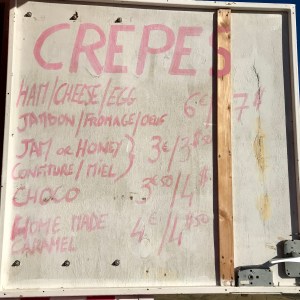 CREPES
HAM/CHEESE/EGG 6€ 7$
JAMBON/FROMAGE/OEUF
JAM OR HONEY 3€/3$50
CONFITURE/MIEL
CHOCO 3€50/4$
HOME MADE 4€/4$50
CARAMEL